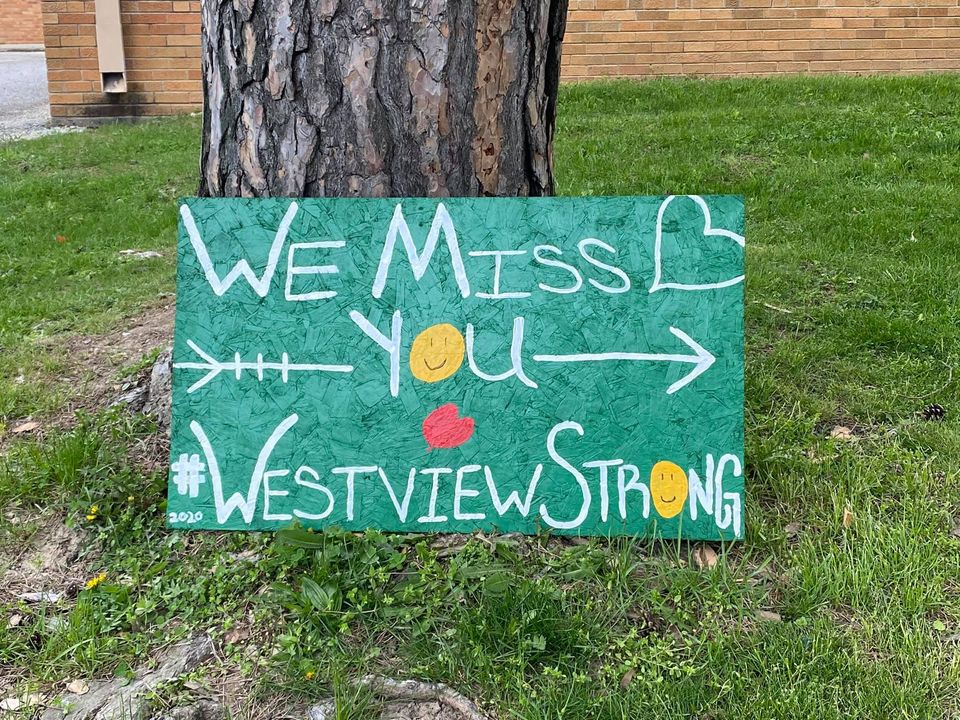 We Miss
You
#Westview Strong
2020